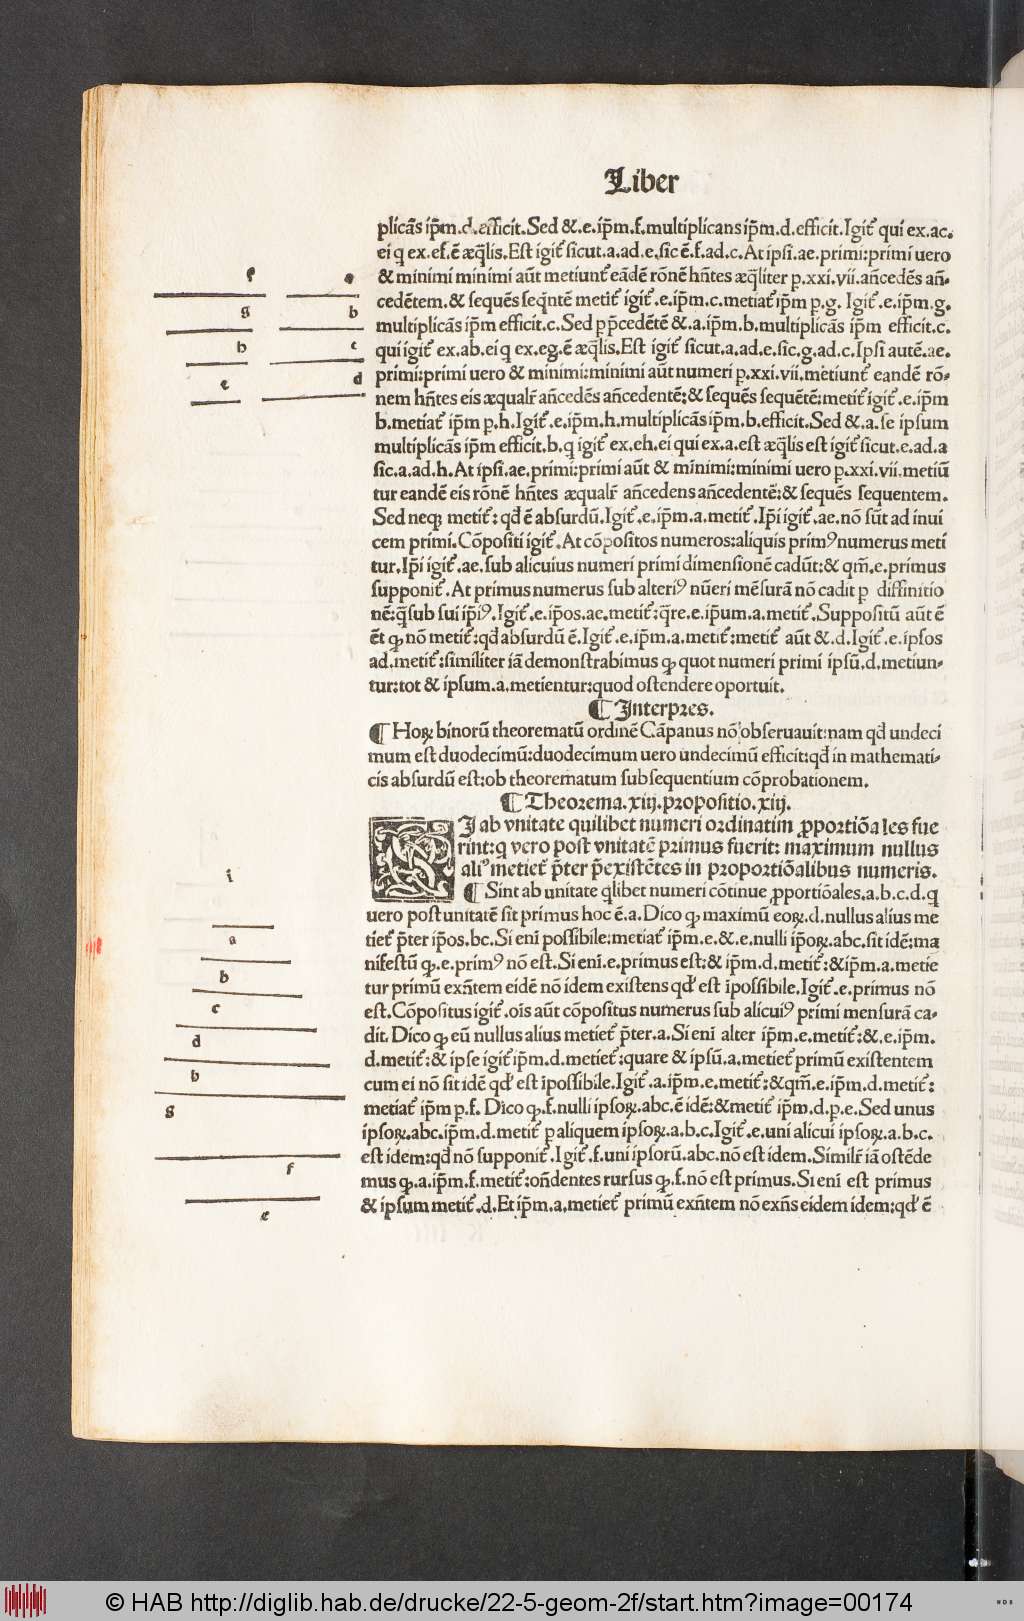 Liber
plicãs ip̃m.d.efficit.Sed &.e.ip̃m.f.multiplicans ip̃m.d.efficit.Igit̃ qui ex.ac.
ei q ex.ef.ẽ æq̃lis.Est igit̃ sicut.a.ad.e.sic ẽ.f.ad.c.At ipsi.ae.primi:primi uero
& minimi minimi aũt metiunt̃ eãdẽ rõnẽ hñtes æq̃liter p.xxi.vii.añcedẽs añ-
cedẽtem.& sequẽs seq̃ntẽ metit̃ igit̃.e.ip̃m.c.metiat̃ ip̃m p.g. Igit̃.e.ip̃m.g.
multiplicãs ip̃m efficit.c.Sed p p̃cedẽtẽ &.a.ip̃m.b.multiplicãs ip̃m efficit.c.
qui igit̃ ex.ab.ei q ex.eg.ẽ æq̃lis.Est igit̃ sicut.a.ad.e.sic.g.ad.c.Ipsi autẽ.ae.
primi:primi uero & minimi:minimi aũt numeri p.xxi.vii.metiunt̃ eandẽ rõ-
nem hñtes eis æqualr̃ añcedẽs añcedentẽ:& sequẽs sequẽtẽ:metit̃ igit̃.e.ip̃m
b.metiat̃ ip̃m p.h.Igit̃.e.ip̃m.h.multiplicãs ip̃m.b.efficit.Sed &.a.se ipsum
multiplicãs ip̃m efficit.b.q igit̃ ex.eh.ei qui ex.a.est æq̃lis est igit̃ sicut.e.ad.a
sic.a.ad.h.At ipsi.ae.primi:primi aũt & minimi:minimi uero p.xxi.vii.metiũ
tur eandẽ eis rõnẽ hñtes æqualr̃ añcedens añcedentẽ:& sequẽs sequentem.
Sed neqꝫ metit̃: qd̃ ẽ absurdũ.Igit̃.e.ip̃m.a.metit̃.Ip̃i igit̃.ae.nõ sũt ad inui
cem primi.Cõpositi igit̃.At cõpositos numeros:aliquis primꝰ numerus meti
tur.Ip̃i igit̃.ae.sub alicuius numeri primi dimensionẽ cadũt:& qm̃.e.primus
supponit̃.At primus numerus sub alteriꝰ nũeri mẽsurã nõ cadit p diffinitio
nẽ:q̃ sub sui ip̃iꝰ.Igit̃.e.ip̃os.ae.metit̃:q̃re.e.ip̃um.a.metit̃.Suppositũ aũt ẽ
ẽt ꝙ nõ metit̃:qd̃ absurdũ ẽ.Igit̃.e.ip̃m.a.metit̃:metit̃ aũt &.d.Igit̃.e.ipsos
ad.metit̃:similiter iã demonstrabimus ꝙ quot numeri primi ipsũ.d.metiun-
tur:tot & ipsum.a.metientur:quod ostendere oportuit.
¶ Interpres.
¶ Hoꝝ binorũ theorematũ ordinẽ Cãpanus nõ obseruauit:nam qd̃ undeci
mum est duodecimũ:duodecimum uero undecimũ efficit:qd̃ in mathemati-
cis absurdũ est:ob theorematum subsequentium cõprobationem.
¶ Theorema.xiij.propositio.xiij.
SI ab vnitate quilibet numeri ordinatim ꝓportiõales fue
rint:q vero post vnitatẽ primus fuerit: maximum nullus
aliꝰ metiet̃ p̃ter p̃existẽtes in proportiõalibus numeris.
¶ Sint ab unitate q̃libet numeri cõtinue ꝓportiõales.a.b.c.d.q
uero post unitatẽ sit primus hoc ẽ.a.Dico ꝙ maximũ eoꝝ.d.nullus alius me
tiet̃ p̃ter ip̃os.bc.Si eni possibile:metiat̃ ip̃m.e.&.e.nulli ip̃oꝝ.abc.sit idẽ:ma
nifestũ ꝙ.e.primꝰ nõ est.Si eni.e.primus est:& ip̃m.d.metit̃:&ip̃m.a.metie
tur primũ exñtem eidẽ nõ idem existens qd̃ est ĩpossibile.Igit̃.e.primus nõ
est.Cõpositus igit̃.oĩs aũt cõpositus numerus sub alicuiꝰ primi mensurã ca-
dit.Dico ꝙ eũ nullus alius metiet̃ p̃ter.a.Si eni alter ip̃m.e.metit̃:&.e.ip̃m.
d.metit̃:& ipse igit̃ ip̃m.d.metiet̃:quare & ipsũ.a.metiet̃ primũ existentem
cum ei nõ sit idẽ qd̃ est ĩpossibile.Igit̃.a.ip̃m.e.metit̃:&qm̃.e.ip̃m.d.metit̃:
metiat̃ ip̃m p.f. Dico ꝙ.f.nulli ipsoꝝ.abc.ẽ idẽ:&metit̃ ip̃m.d.p.e.Sed unus
ipsoꝝ.abc.ip̃m.d.metit̃ p aliquem ipsoꝝ.a.b.c.Igit̃.e.uni alicui ipsoꝝ.a.b.c.
est idem:qd̃ nõ supponit̃.Igit̃.f.uni ipsorũ.abc.nõ est idem.Similr̃ iã ostẽde
mus ꝙ.a.ip̃m.f.metit̃:oñdentes rursus ꝙ.f.nõ est primus.Si eni est primus
& ipsum metit̃.d.Et ip̃m.a.metiet̃ primũ exñtem nõ exñs eidem idem:qd̃ ẽ
f a
g b
h c
e d
i
a
b
c
d
h
g
f
e
© HAB http://diglib.hab.de/drucke/22-5-geom-2f/start.htm?image=00174